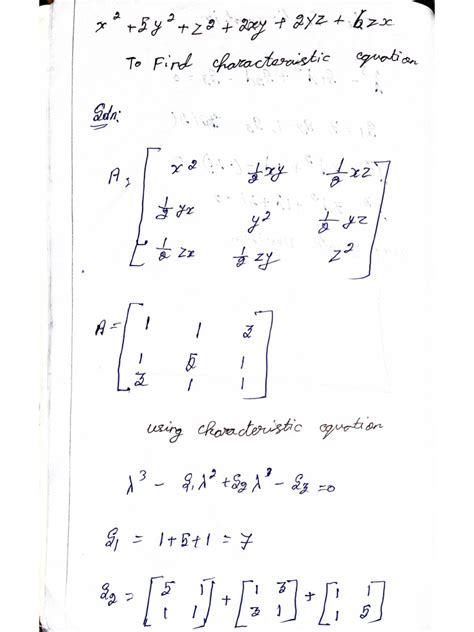 x² + 5y² + z² + 2xy + 2yz + 6zx
To Find characteraistic equation
Soln:
A = [ x² 1/2 xy 1/2 xz
1/2 yx y² 1/2 yz
1/2 zx 1/2 zy z² ]
A = [ 1 1 3
1 5 1
3 1 1 ]
using characteristic equation
λ³ - S₁λ² + S₂λ³ - S₃ = 0
S₁ = 1+5+1 = 7
S₂ = [ 5 1 + [ 1 3 + [ 1 1
1 1 ] 3 1 ] 1 5 ]